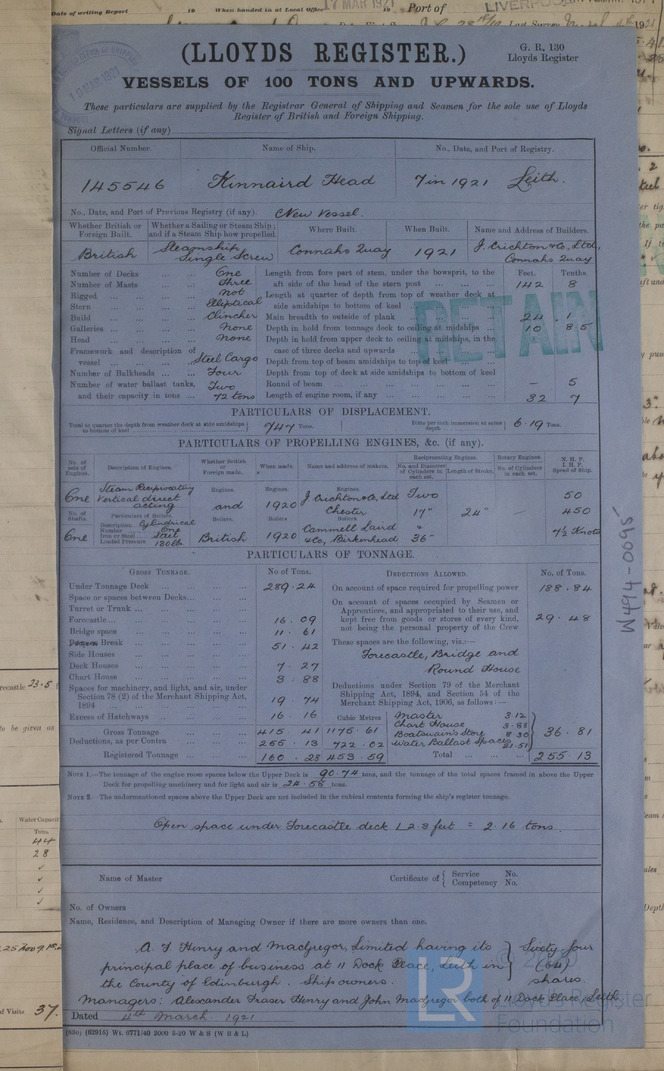 Date of writing Report 19 When handed in at Local Office 17 MAR 1921 Port of LIVERPOOL
(LLOYDS REGISTER.)
G. R. 130
Lloyds Register
VESSELS OF 100 TONS AND UPWARDS.
These particulars are supplied by the Registrar General of Shipping and Seamen for the sole use of Lloyds
Register of British and Foreign Shipping.
Signal Letters (if any)
Official Number. Name of Ship. No., Date, and Port of Registry.
145546 Kinnaird Head 7 in 1921 Leith.
No., Date, and Port of Previous Registry (if any). New Vessel.
Whether British or Foreign Built. Whether a Sailing or Steam Ship; and if a Steam Ship how propelled Where Built. When Built. Name and Address of Builders.
British Steamship Single Screw Connahs Quay 1921 J. Crichton & Co, Ltd, Connahs Quay
Number of Decks One Length from fore part of stem, under the bowsprit, to the Feet. Tenths.
Number of Masts Three aft side of the head of the stern post 142 8
Rigged not Length at quarter of depth from top of weather deck at
Stern Elliptical side amidships to bottom of keel
Build Clincher Main breadth to outside of plank 24 1
Galleries None Depth in hold from tonnage deck to ceiling at midships 10 85
Head None Depth in hold from upper deck to ceiling at midships, in the
Framework and description of vessel Steel Cargo case of three decks and upwards
Depth from top of beam amidships to top of keel
Number of Bulkheads Four Depth from top of deck at side amidships to bottom of keel
Number of water ballast tanks, Two Round of beam — 5
and their capacity in tons 72 tons Length of engine room, if any 32 7
RETAIN
PARTICULARS OF DISPLACEMENT.
Total to quarter the depth from weather deck at side amidships to bottom of keel 747 Tons. Ditto per inch immersion at same depth 6.19 Tons.
PARTICULARS OF PROPELLING ENGINES, &c. (if any).
No. of sets of Engines. Description of Engines. Whether British or Foreign made. When made. Name and address of makers. Reciprocating Engines. Rotary Engines. N.H.P. I.H.P. Speed of Ship.
No. and Diameter of Cylinders in each set. Length of Stroke. No. of Cylinders in each set.
One Steam Reciprocating Vertical direct acting Engines. and Engines. 1920 Engines. J Crichton & Co, Ltd Chester Two 17" 24" — 50 450
No. of Shafts. Particulars of Boilers. Boilers. Boilers. Boilers.
One Description Cylindrical Number One Iron or Steel Steel Loaded Pressure 130lb British 1920 Cammell Laird & Co, Birkenhead 36" 9½ Knots
PARTICULARS OF TONNAGE.
GROSS TONNAGE. No. of Tons. DEDUCTIONS ALLOWED. No. of Tons.
Under Tonnage Deck 289.24 On account of space required for propelling power 188.84
Space or spaces between Decks
Turret or Trunk
Forecastle 16.09
Bridge space 11.61
Break 51.42
Side Houses
Deck Houses 7.27
Chart House 3.88
On account of spaces occupied by Seamen or
Apprentices, and appropriated to their use, and
kept free from goods or stores of every kind,
not being the personal property of the Crew 29.48
These spaces are the following, viz.:—
Forecastle, Bridge and
Round House
Spaces for machinery, and light, and air, under
Section 78 (2) of the Merchant Shipping Act,
1894 19.74
Deductions under Section 79 of the Merchant
Shipping Act, 1894, and Section 54 of the
Merchant Shipping Act, 1906, as follows:—
Excess of Hatchways 16.16 Cubic Metres
Master 3.12
Chart House 3.88
Boatswain's Store 8.30
Water Ballast Spaces 21.51
36.81
Gross Tonnage 415 41 1175.61
Deductions, as per Contra 255.13 722.02
Registered Tonnage 160.28 453.59 Total 255.13
NOTE 1.—The tonnage of the engine room spaces below the Upper Deck is 90.74 tons, and the tonnage of the total spaces framed in above the Upper
Deck for propelling machinery and for light and air is 24.56 tons.
NOTE 2.—The undermentioned spaces above the Upper Deck are not included in the cubical contents forming the ship's register tonnage.
Open space under Forecastle deck L 2.3 feet = 2.16 tons.
Name of Master Certificate of { Service No. Competency No.
No. of Owners
Name, Residence, and Description of Managing Owner if there are more owners than one.
A F Henry and MacGregor, Limited having its } Sixty four
principal place of business at 11 Dock Place, Leith in } (64)
the County of Edinburgh. Shipowners. } shares
Managers: Alexander Fraser Henry and John MacGregor both of 11 Dock Place, Leith
Dated 4th March. 1921
(83c) (62915) Wt. 6771/40 2000 5-20 W & S (W B & L)
W494-0095
LR
Lloyd's Register
Foundation
Water Capacity
Tons
44
28
of Visits 37.